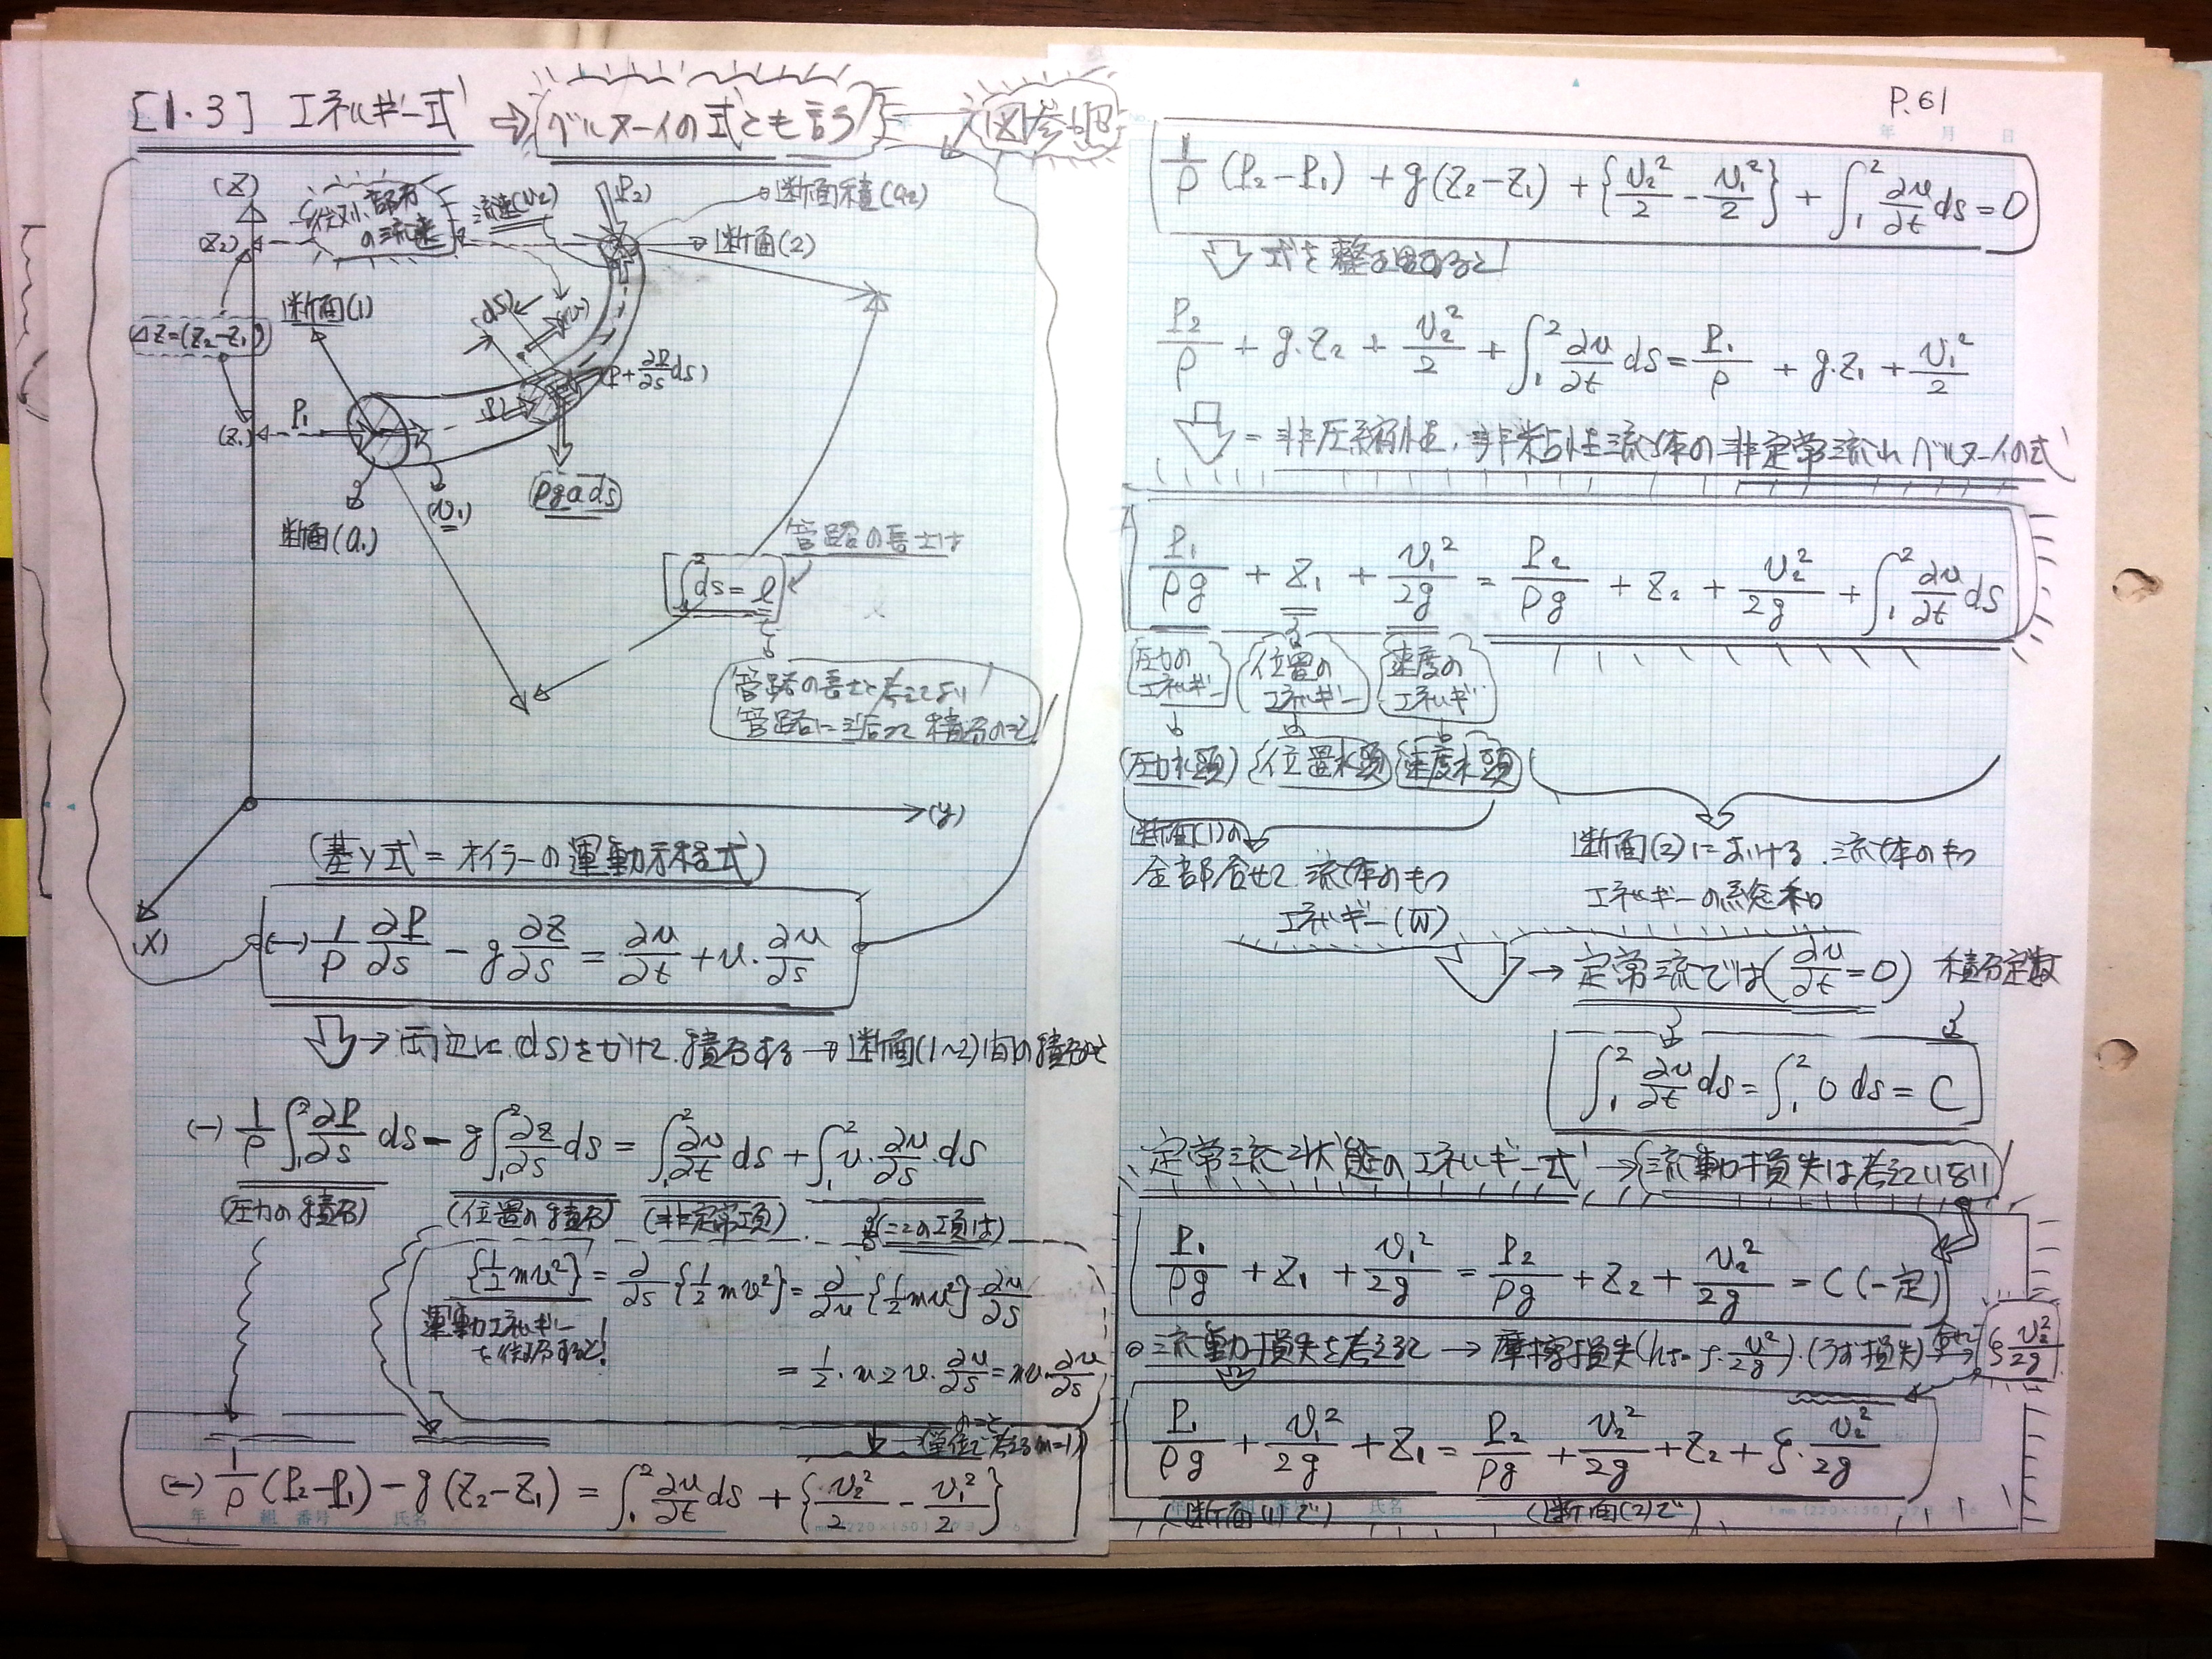 [1.3] エネルギー式 ⇒ ベルヌーイの式とも言う
図参照
(Z)
微小部分
の流速
流速(v2)
P2)
断面積(a2)
(Z2)
断面(2)
断面(1)
ΔZ=(Z2-Z1)
ds
(v)
(P+∂P/∂s ds)
P1
(Z1)
(v1)
ρgads
断面(a1)
管路の長さは
∫₁² ds = l
管路の長さと考えてよい!
管路に沿って積分のこと
(y)
(X)
(基本式=オイラーの運動方程式)
(-) 1/ρ ∂P/∂s - g ∂Z/∂s = ∂v/∂t + v・∂v/∂s
→両辺に(ds)をかけて積分する→断面(1~2)間の積分で
(-) 1/ρ ∫₁² ∂P/∂s ds - g∫₁² ∂Z/∂s ds = ∫₁² ∂v/∂t ds + ∫₁² v・∂v/∂s・ds
(圧力の積分) (位置の積分) (非定常項) (この項は)
{1/2 mv²} = ∂/∂s {1/2 mv²} = ∂/∂v {1/2 mv²} ∂v/∂s
運動エネルギー
を微分すると!
= 1/2・m2v・∂v/∂s = mv・∂v/∂s
(単位で考えるm=1)
(-) 1/ρ (P2-P1) - g(Z2-Z1) = ∫₁² ∂v/∂t ds + {v2²/2 - v1²/2}
P.61
年 月 日
1/ρ (P2-P1) + g(Z2-Z1) + {v2²/2 - v1²/2} + ∫₁² ∂v/∂t ds = 0
式を整理すると
P2/ρ + g・Z2 + v2²/2 + ∫₁² ∂v/∂t ds = P1/ρ + g・Z1 + v1²/2
=非圧縮性、非粘性流体の非定常流れベルヌーイの式
P1/ρg + Z1 + v1²/2g = P2/ρg + Z2 + v2²/2g + ∫₁² ∂v/∂t ds
圧力の
エネルギー
位置の
エネルギー
速度の
エネルギー
(圧力水頭) {位置水頭} {速度水頭}
断面(1)の
全部合せて流体のもつ
エネルギー(W)
断面(2)における流体のもつ
エネルギーの総和
→定常流では(∂v/∂t=0) 積分定数
∫₁² ∂v/∂t ds = ∫₁² 0 ds = C
定常流状態のエネルギー式→(流動損失は考えていない)
P1/ρg + Z1 + v1²/2g = P2/ρg + Z2 + v2²/2g = C(一定)
流動損失を考えると→摩擦損失(hf=ζ・v²/2g)・(うず損失)
ζ v2²/2g
P1/ρg + v1²/2g + Z1 = P2/ρg + v2²/2g + Z2 + ζ・v2²/2g
(断面(1)で) (断面(2)で)
年 組 番号 氏名
氏名